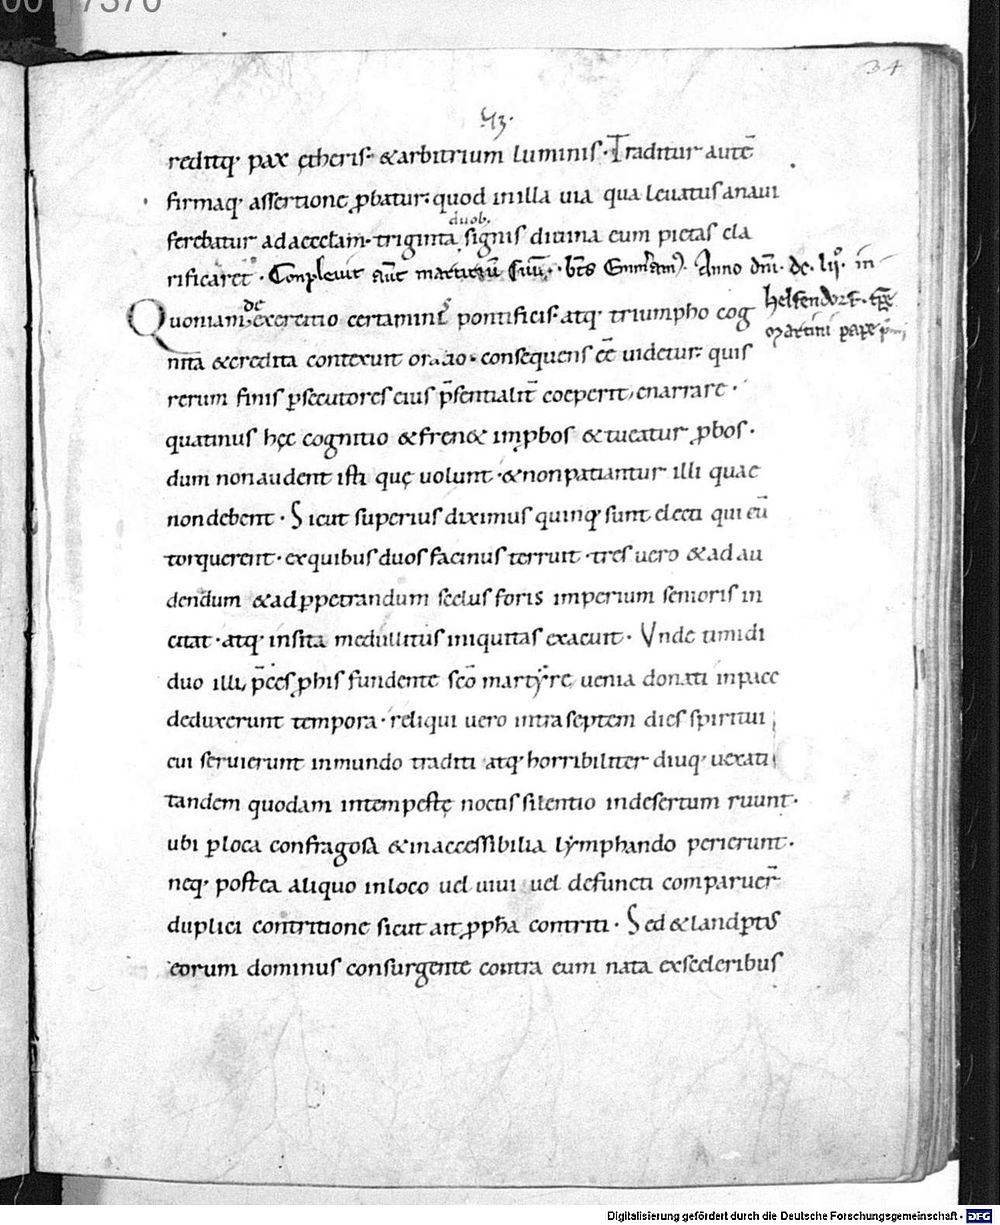 34
43.
reditq; pax ętheris· &arbitrium luminis· Traditur autē
firmaq; assertione ꝓbatur; quod inilla uia qua leuatus anaui
duob.
ferebatur ad aecclam· triginta signis diuina eum pietas cla
rificaret· Conpleuit aūt martiriū suū· bt̄s Emm̄am̄. Anno dm̄i. dc. lij. in
helfendorf.
martini pape
de
Quoniam exercitio certaminis pontificis· atq; triumpho cog
nita &credita contexuit oratio· consequens ēē uidetur; quis
rerum finis ꝑsecutores eius p̄sentialit̄ coeperit, enarrare·
quatinus hęc cognitio &fren& imꝓbos &tueatur ꝓbos·
dum nonaudent isti quę uolunt· &nonpatiantur illi quae
nondebent· Sicut superius diximus quinq; sunt electi qui eū
torquerent· exquibus duos facinus terruit· tres uero &ad au
dendum &adꝑpetrandum scelus foris imperium senioris in
citat· atq; insita medullitus iniquitas exacuit· Vnde timidi
duo illi, p̄ces ꝓhis fundente sc̄o martyre, uenia donati inpace
deduxerunt tempora· reliqui uero intra septem dies spiritui
cui seruierunt inmundo traditi atq; horribiliter diuq; uexati
tandem quodam intempestę noctis silentio indesertum ruunt·
ubi ꝑloca confragosa &inaccessibilia lymphando perierunt·
neq; postea aliquo inloco uel uiui uel defuncti comparuer̄
duplici contritione sicut ait ꝓph̄a contriti· Sed &landptus
eorum dominus consurgente contra eum nata exsceleribus
Digitalisierung gefördert durch die Deutsche Forschungsgemeinschaft - DFG